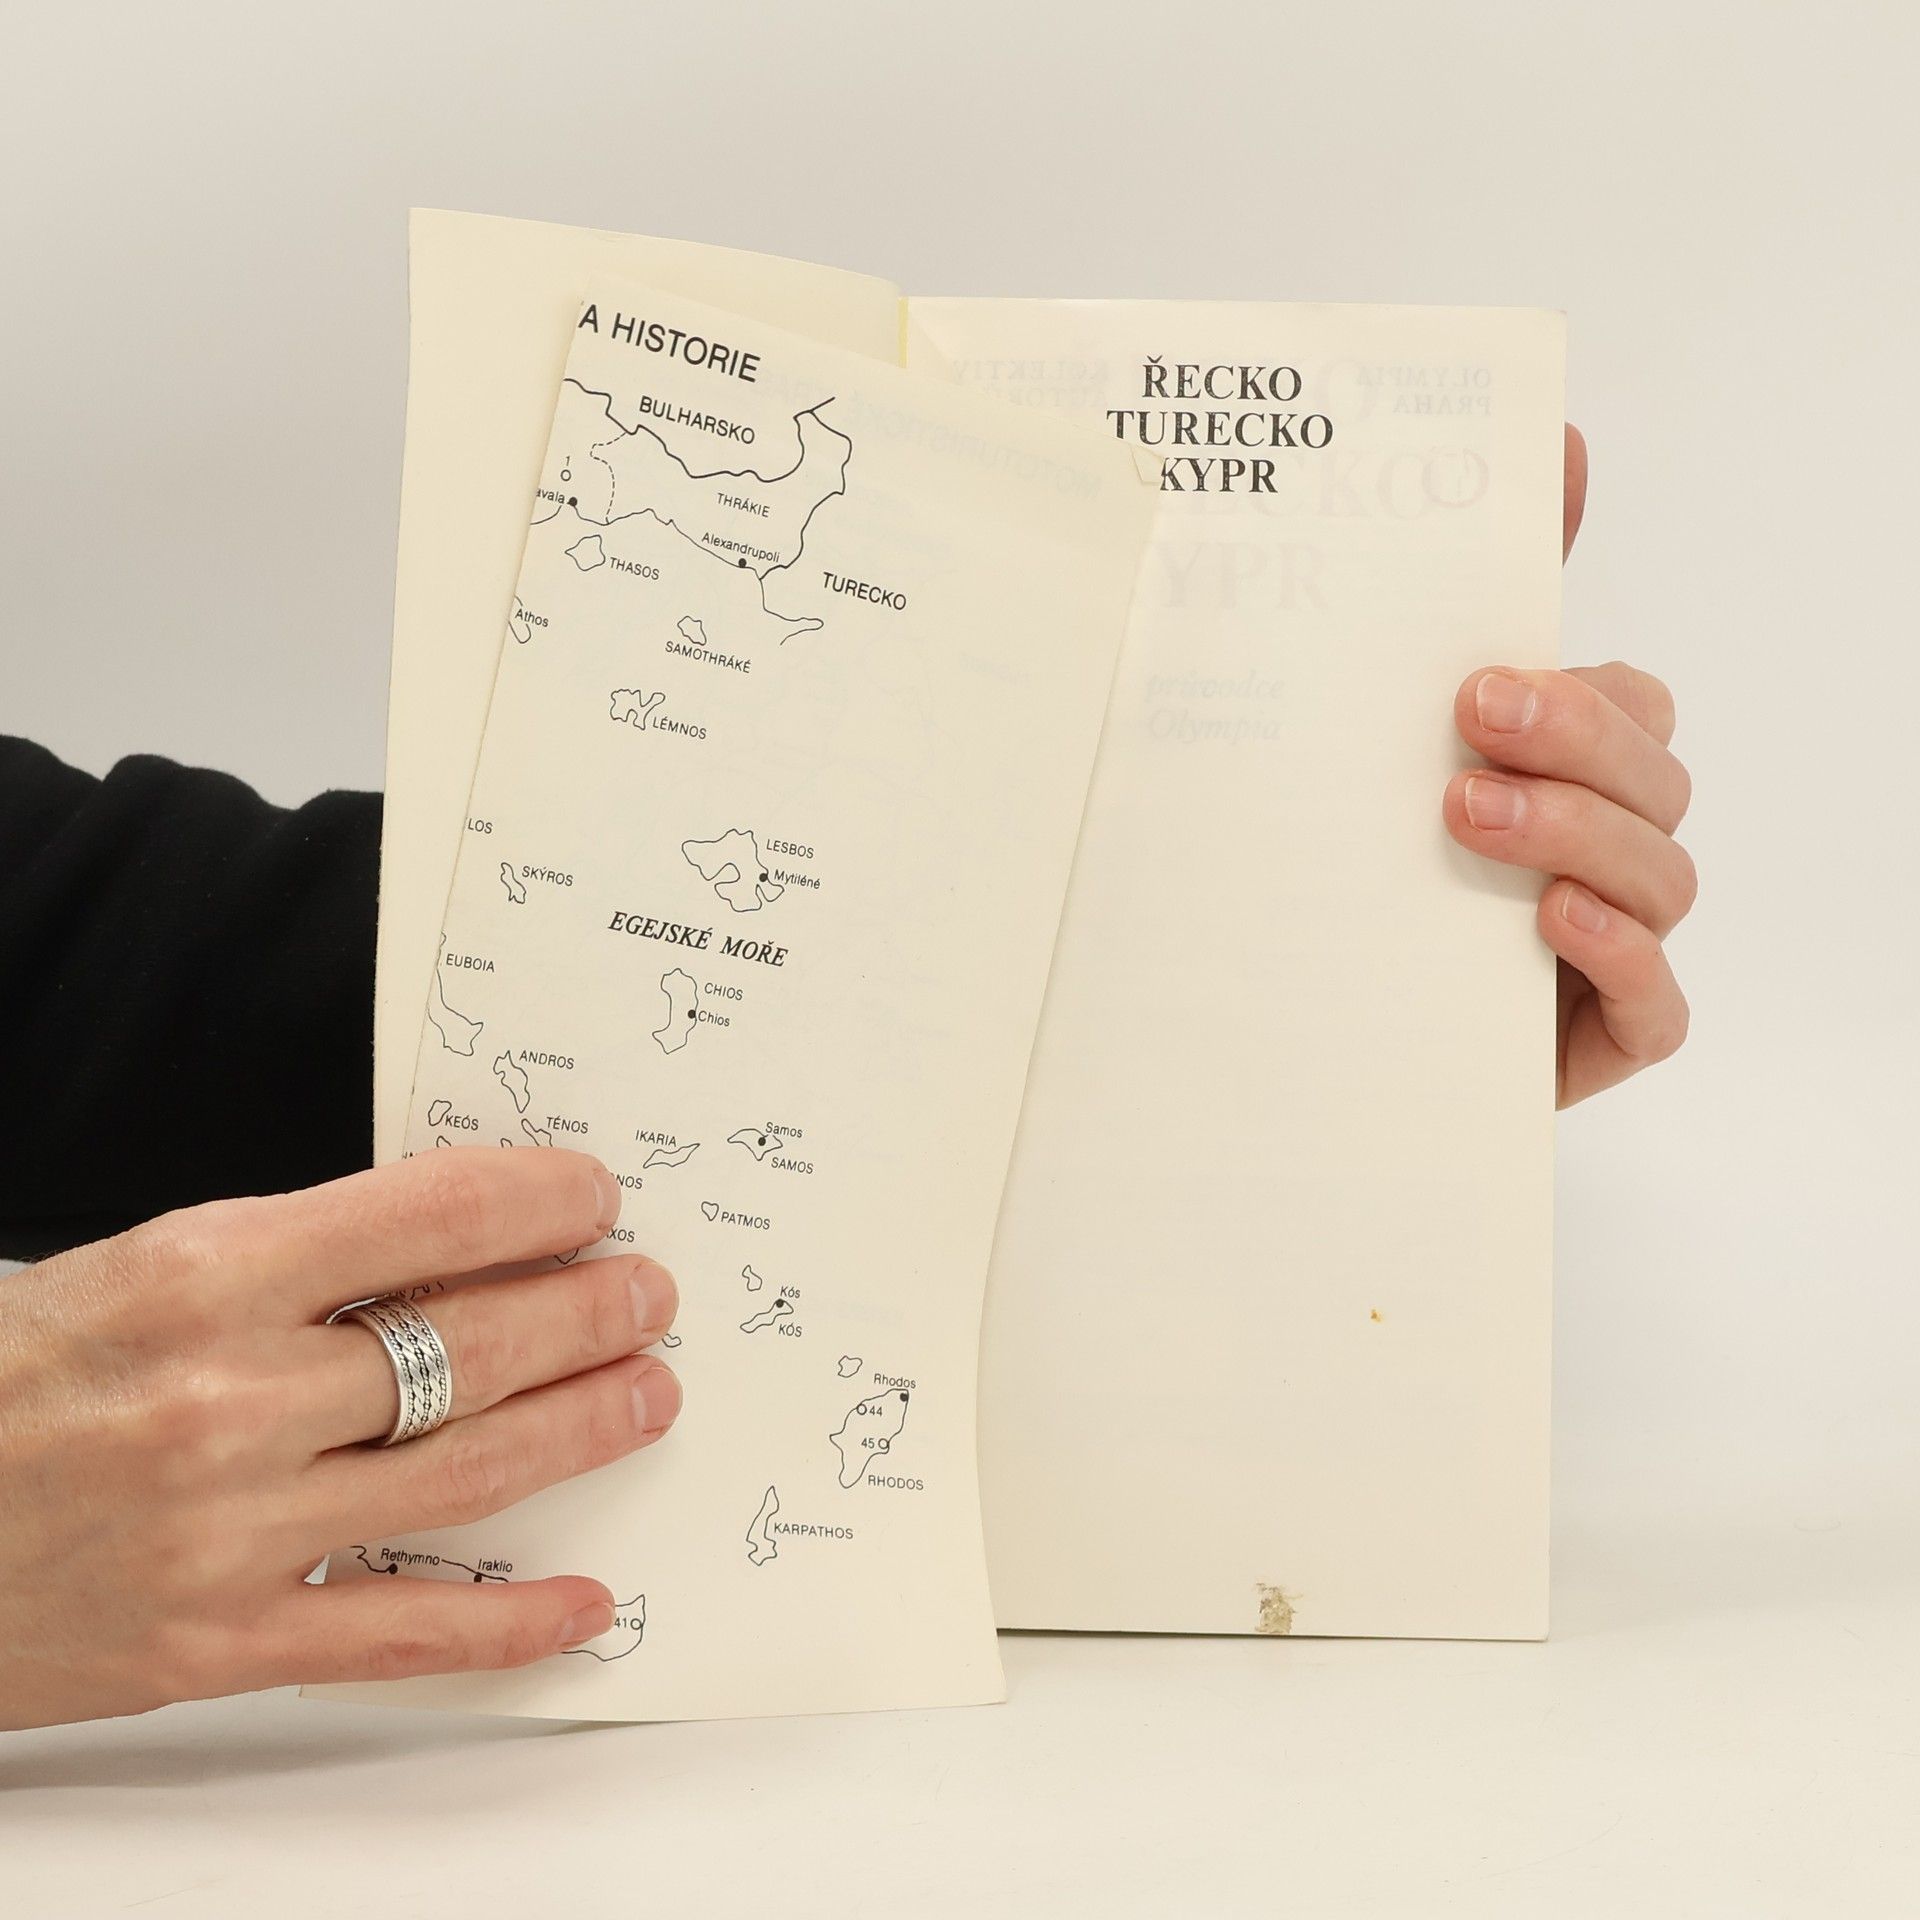 A HISTORIE
BULHARSKO
1
avala
THRÁKIE
Alexandrupoli
THASOS
TURECKO
Athos
SAMOTHRÁKÉ
LÉMNOS
LOS
LESBOS
Mytiléné
SKÝROS
EGEJSKÉ MOŘE
EUBOIA
CHIOS
Chios
ANDROS
KEÓS
TÉNOS
IKARIA
Samos
SAMOS
NOS
XOS
PATMOS
Kós
KÓS
Rhodos
44
45
RHODOS
KARPATHOS
Rethymno
Iraklio
41
ŘECKO
TURECKO
KYPR
OLYMPIA
PRAHA
KOLEKTIV
KYPR
průvodce
Olympia